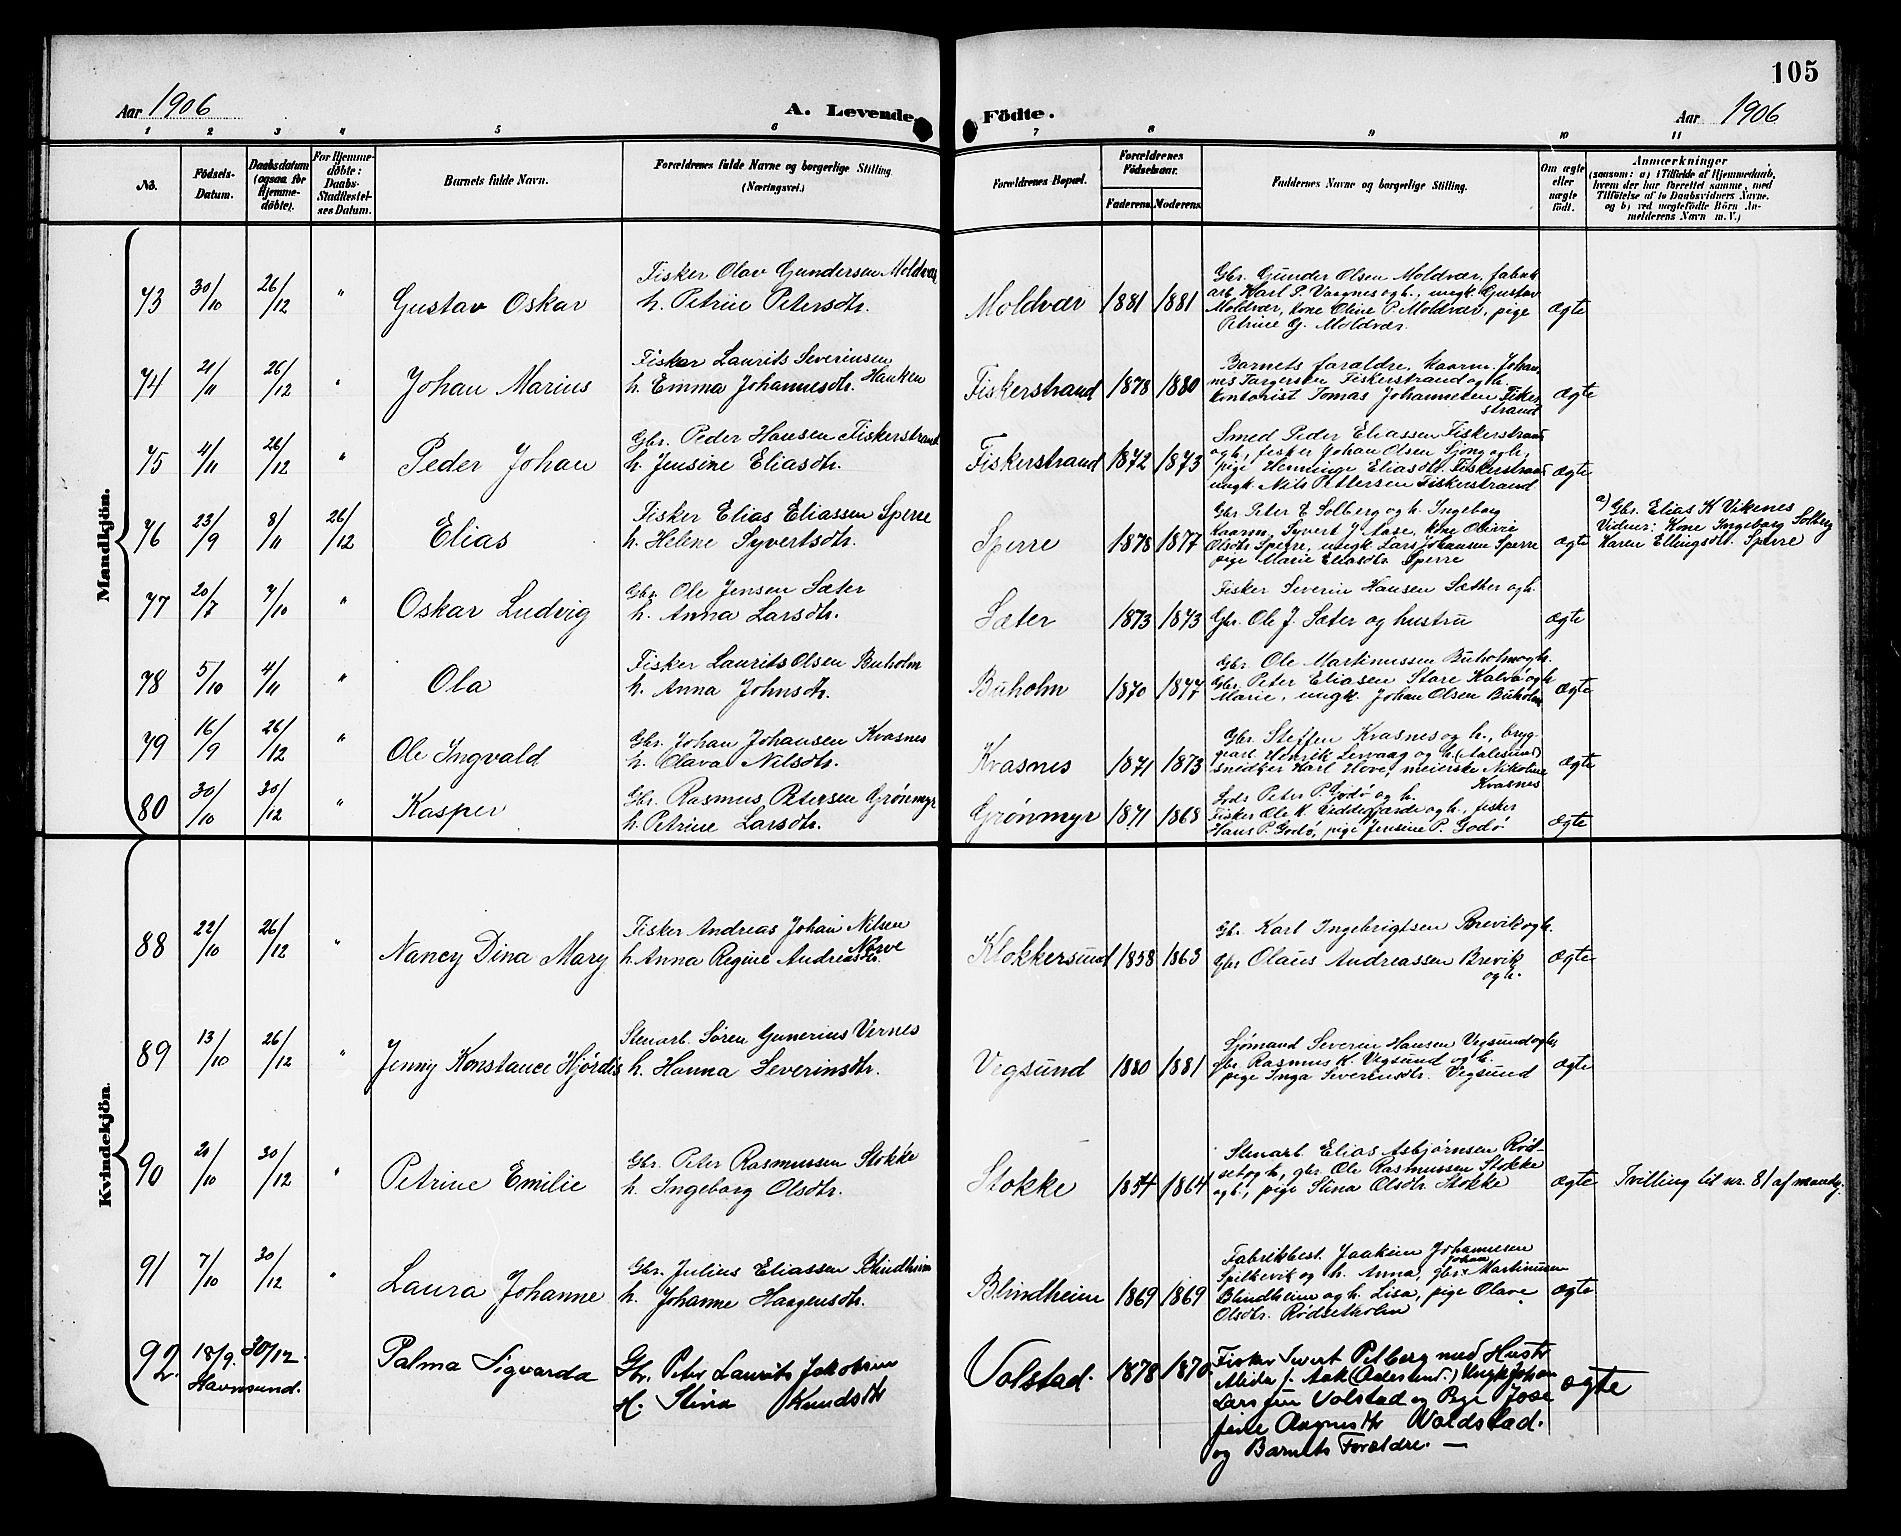 105
Aar 1906
A. Levende Födte.
Aar 1906
1 2 3 4 5 6 7 8 9 10 11
No.
Födsels-Datum.
Daabsdatum (ogsaa for Hjemme-döbte).
For Hjemme-döbte: Daabs-Stadfæstel-ses Datum.
Barnets fulde Navn.
Forældrenes fulde Navne og borgerlige Stilling. (Næringsvei.)
Forældrenes Bopæl.
Forældrenes Födselsaar.
Faderens. Moderens.
Faddernes Navne og borgerlige Stilling.
Om ægte eller uægte födt.
Anmærkninger
(saasom: a) i Tilfælde af Hjemmedaab, hvem der har forrettet samme, med Tilföielse af to Daabsvidners Navne, og b) ved uægtefödte Börn An-melderens Navn m. V.)
Mandkjön.
73 30/10 26/12 " Gustav Oskar
Fisker Olav Gundersen Moldvær
h. Petrine Petersdtr.
Moldvær 1881 1881
Gbr. Gunder Olsen Moldvær, fabrik
arb. Karl P. Vaagnes og h., ungk. Gustav
Moldvær, kone Oline P. Moldvær, pige
Petrine G. Moldvær.
ægte
74 21/11 26/12 " Johan Marius
Fisker Laurits Severinsen
h. Emma Johannesdtr. Hauken
Fiskerstrand 1878 1880
Barnets forældre, kaarm. Johan
nes Torgersen Fiskerstrand og h.
kontorist Tomas Johannesen Fisker
strand
ægte
75 4/11 26/12 " Peder Johan
Gbr. Peder Hansen Fiskerstrand
h. Jensine Eliasdtr.
Fiskerstrand 1872 1873
Smed Peder Eliassen Fiskerstrand
og h., fisker Johan Olsen Sjong og h.,
pige Henninge Eliasdtr. Fiskerstrand
ungk Nils Pettersen Fiskerstrand
ægte
76 23/9 8/11 26/12 Elias
Fisker Elias Eliassen Sperre
h. Helene Syvertsdtr.
Sperre 1878 1877
Gbr Peter E Solberg og h. Ingeborg
Kaarm. Syvert J. Aase, kone Olivie
Olsdtr Sperre, ungk Lars Johansen Sperre
pige Marie Eliasdtr. Sperre
ægte
a) Gbr. Elias K Vikenes
Vidner: Kone Ingeborg Solberg
Karen Ellingsdtr. Sperre
77 20/7 7/10 " Oskar Ludvig
Gbr. Ole Jensen Sæter
h. Anna Larsdtr.
Sæter 1873 1873
Fisker Severin Hansen Sæther og h.
Gbr. Ole J. Sæter og hustru
ægte
78 5/10 4/11 " Ola
Fisker Laurits Olsen Buholm
h. Anna Johnsdtr.
Buholm 1870 1877
Gbr. Ole Martinussen Buholm og h.
Gbr Peter Eliasen Store Kalvø og h
Marie, ungk. Johan Olsen Buholm
ægte
79 16/9 26/12 " Ole Ingvald
Gbr. Johan Johansen Kvasnes
h. Olava Nilsdtr.
Kvasnes 1871 1873
Gbr. Steffen Kvasnes og h., bryg
gearb Henrik Lervaag og h. (Aalesund)
snedker Karl Hove, meierske Nikoline
Kvasnes
ægte
80 30/10 30/12 " Kasper
Gbr. Rasmus Petersen Grønmyr
h. Petrine Larsdtr.
Grønmyr 1871 1868
Lods Peter P. Godø og h.
Fisker Ole K. Giddegjærde og h., fisker
Hans P. Godø, pige Jensine P. Godø
ægte
Kvindekjön.
88 22/10 26/12 " Nancy Dina Mary
Fisker Andreas Johan Nilsen
Nørve
h. Anna Regine Andreasdtr.
Klokkersund 1858 1863
Gbr. Karl Ingebrigtsen Brevik og h.
Gbr Olaus Andreassen Brevik
og h.
ægte
89 13/10 26/12 " Jenny Konstance Hjørdis
Stenarb. Søren Gunerius Vernes
h. Hanna Severinsdtr.
Vegsund 1880 1881
Sjømand Severin Hansen Vegsund og h.
gbr. Rasmus K. Vegsund og h.
pige Inga Severinsdtr. Vegsund
ægte
90 20/10 30/12 " Petrine Emilie
Gbr. Peter Rasmussen Stokke
h. Ingeborg Olsdtr.
Stokke 1854 1864
Stenarb Elias Asbjørnsen Rød-
set og h, gbr Ole Rasmussen Stokke
og h., pige Stina Olsdtr Stokke
ægte
Tvilling til nr. 81 af mandkj.
91 7/10 30/12 " Laura Johanne
Gbr. Julius Eliassen Blindheim
h. Johanne Haagensdtr.
Blindheim 1869 1869
Fabrikbest. Joakim Johannesen
Spilkevik og h. Anna, gbr. Johan Martinusen
Blindheim og h. Lisa, pige Olave
Olsdtr. Rødsetholm
ægte
92. 18/9. 30/12. Palma Sigvarda
Havnsund.
Gbr. Peter Laurits Jakobsen
H. Stina Knudsdtr
Volstad. 1878 1870
Fisker Sivert Petberg med Hustr
(Aalesund.) Ungk Johan
Larssen Volstad og Pige Jose
fine Aagnesdtr Woldstad.
og Barnets Forældre. —
ægte